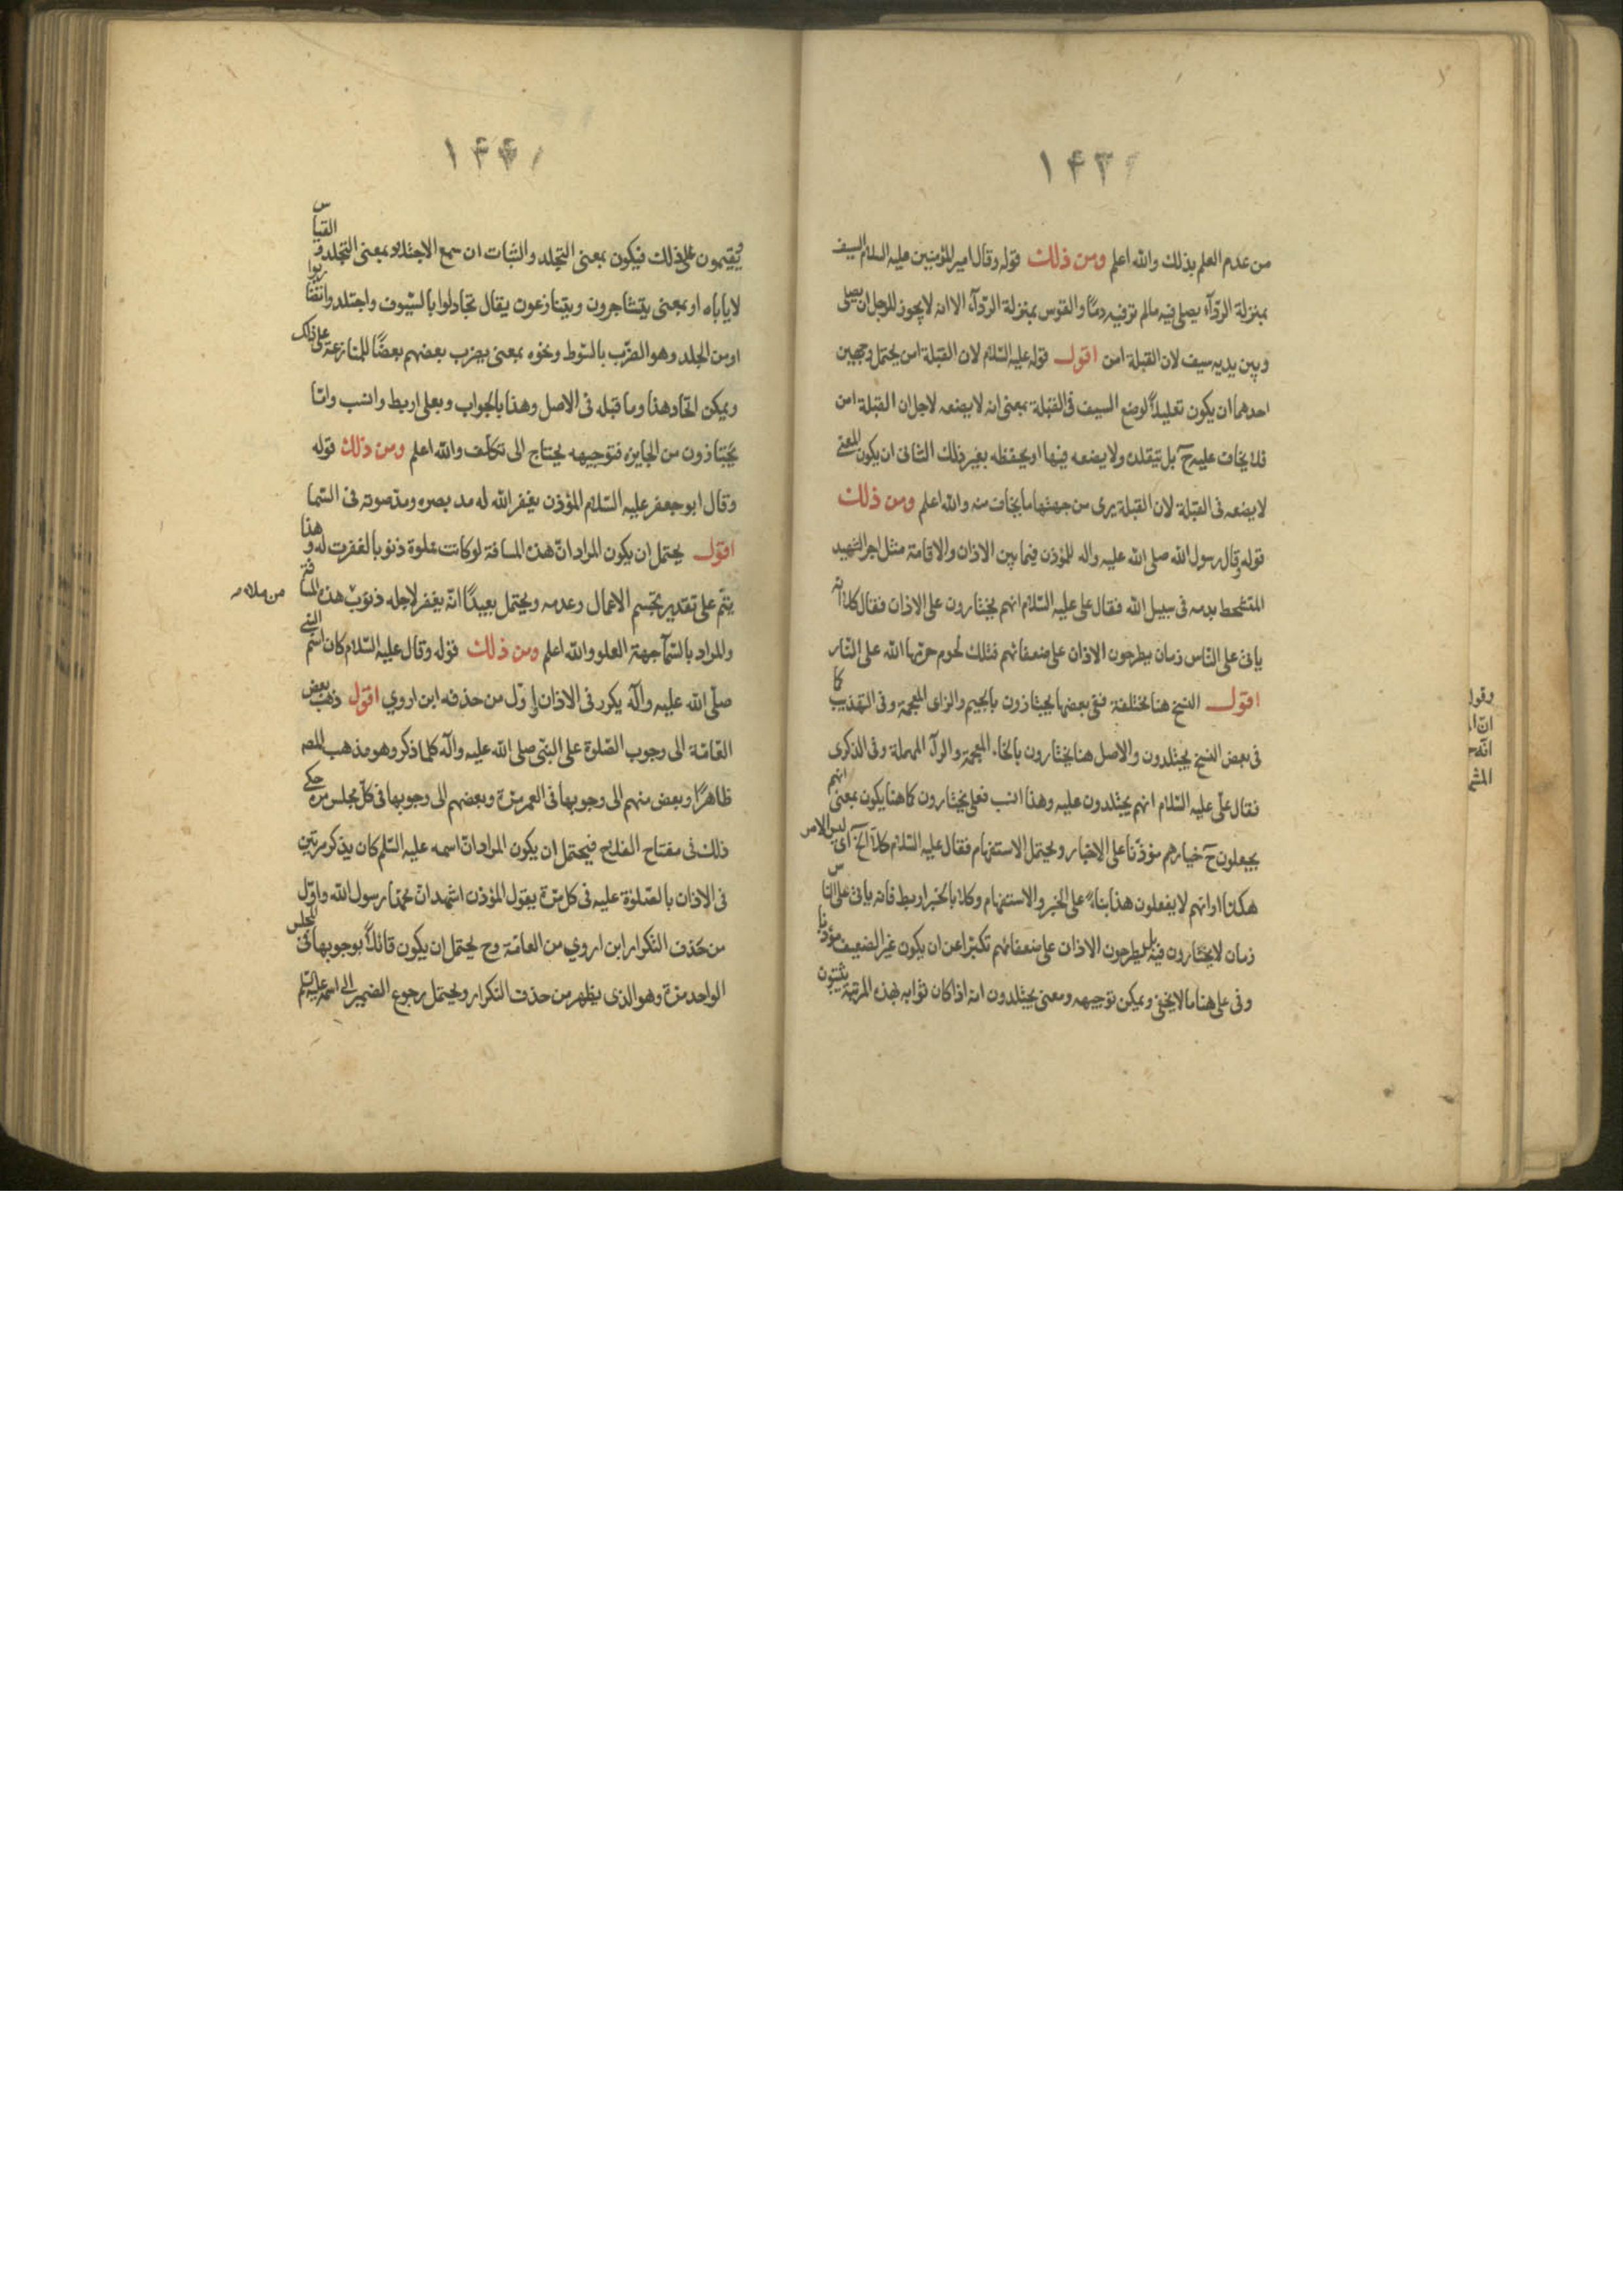 ١٤٣
من عدم العلم بذلك والله اعلم ومن ذلك قوله وقال امير المؤمنين عليه السلام السيف
بمنزلة الردآء يصلى فيه مالم تر فيه دمًا والقوس بمنزلة الردآء الا انه لا يجوز للرجل ان يصلى
وبين يديه سيف لان القبلة امن اقول قوله عليه السّلام لان القبلة امن يحتمل وجهين
احدهما ان يكون تعليلاً لوضع السيف فى القبلة بمعنى انه لا يضعه لاجل ان القبلة امن
فلا يخاف عليه حَ بل يتقلده ولا يضعه فيها او يحفظه بغير ذلك الثانى ان يكون المعنى
لا يضعه فى القبلة لان القبلة يرى من جهتها ما يخاف منه والله اعلم ومن ذلك
قوله وقال رسول الله صلى الله عليه واله للمؤذن فيما بين الاذان والاقامة مثل اجر الشهيد
المتشحط بدمه فى سبيل الله فقال على عليه السّلام انهم يختارون على الاذان فقال كلا انه
ياتى على النّاس زمان يطرحون الاذان على ضعفائهم فتلك لحوم حرّمها الله على النّار
اقول النسخ هنا مختلفة ففى بعضها يجتازون بالجيم والزاى المعجمة وفى التهذيب كا
فى بعض النسخ يجتلدون والاصل هنا يختارون بالخاء المعجمة والرآء المهملة وفى الذكرى
فقال علىّ عليه السّلام انهم يجتلدون عليه وهذا انسب فعلى يختارون كما هنا يكون بمعنى انهم
يجعلون حَ خيارهم مؤذّنا على الاخبار ويحتمل الاستفهام فقال عليه السّلام كلّا الخ آى ليس الامر
هكذا او انهم لا يفعلون هذا بناءً على الخبر والاستفهام وكلا بالخبر اربط فانه ياتى على النا س
زمان لا يختارون فيه بل يطرحون الاذان على ضعفائهم تكبّرا عن ان يكون غير الضعيف مؤذنا
وفى على هنا ما لا يخفى ويمكن توجيهه ومعنى يجتلدون انه اذا كان ثوابه بهذه المرتبة يثبتون
وقول
انّ ا
انّه
المشم
١٤٤
ويقيمون على ذلك فيكون بمعنى التجلد والثبات ان سمع الاجتلاد بمعنى التجلد و القيا س
لا ياباه او بمعنى يتشاجرون ويتنازعون يقال تجادلوا بالسّيوف واجتلدوا
او من الجلد وهو الضّرب بالسّوط ونحوه بمعنى يضرب بعضهم بعضًا للمنازعة على ذلك
ويمكن اتحاد هذا وما قبله فى الاصل وهذا بالجواب وبعلى اربط وانسب وامّا
يجتازون من الجايزة فتوجيهه يحتاج الى تكلف والله اعلم ومن ذلك قوله
وقال ابو جعفر عليه السّلام المؤذن يغفر الله له مد بصره ومدّ صوته فى السّما
اقول يحتمل ان يكون المراد انّ هذه المسافة لو كانت مملوة ذنوبا لغفرت له و هذا
يتمّ على تقدير تجسم الاعمال وعدمه ويحتمل بعيدًا انّه يغفر لاجله ذنوب هذه المسا فة
والمراد بالسّمآ جهة العلو والله اعلم ومن ذلك قوله وقال عليه السّلام كان اسم النبى
صلّى الله عليه وآله يكرر فى الاذان واوّل من حذفه ابن اروي اقول ذهب بعض
العّامّة الى وجوب الصّلوة على النبّى صلى الله عليه واله كلما ذكر وهو مذهب المصه
ظاهرًا وبعض منهم الى وجوبها فى العمر مرّة وبعضهم الى وجوبها فى كلّ مجلس مرّة حكى
ذلك فى مفتاح الفلاح فيحتمل ان يكون المراد انّ اسمه عليه السّلم كان يذكر مرتين
فى الاذان بالصّلوة عليه فى كل مرّة يقول المؤذن اشهد انّ محمّدا رسول الله واوّل
من حذف التكرار ابن اروي من العامّة وح يحتمل ان يكون قائلاً بوجوبها فى المجلس
الواحد مرّة وهو الذى يظهر من حذف التكرار ويحتمل رجوع الضمير الى اسمه عليه السّلم